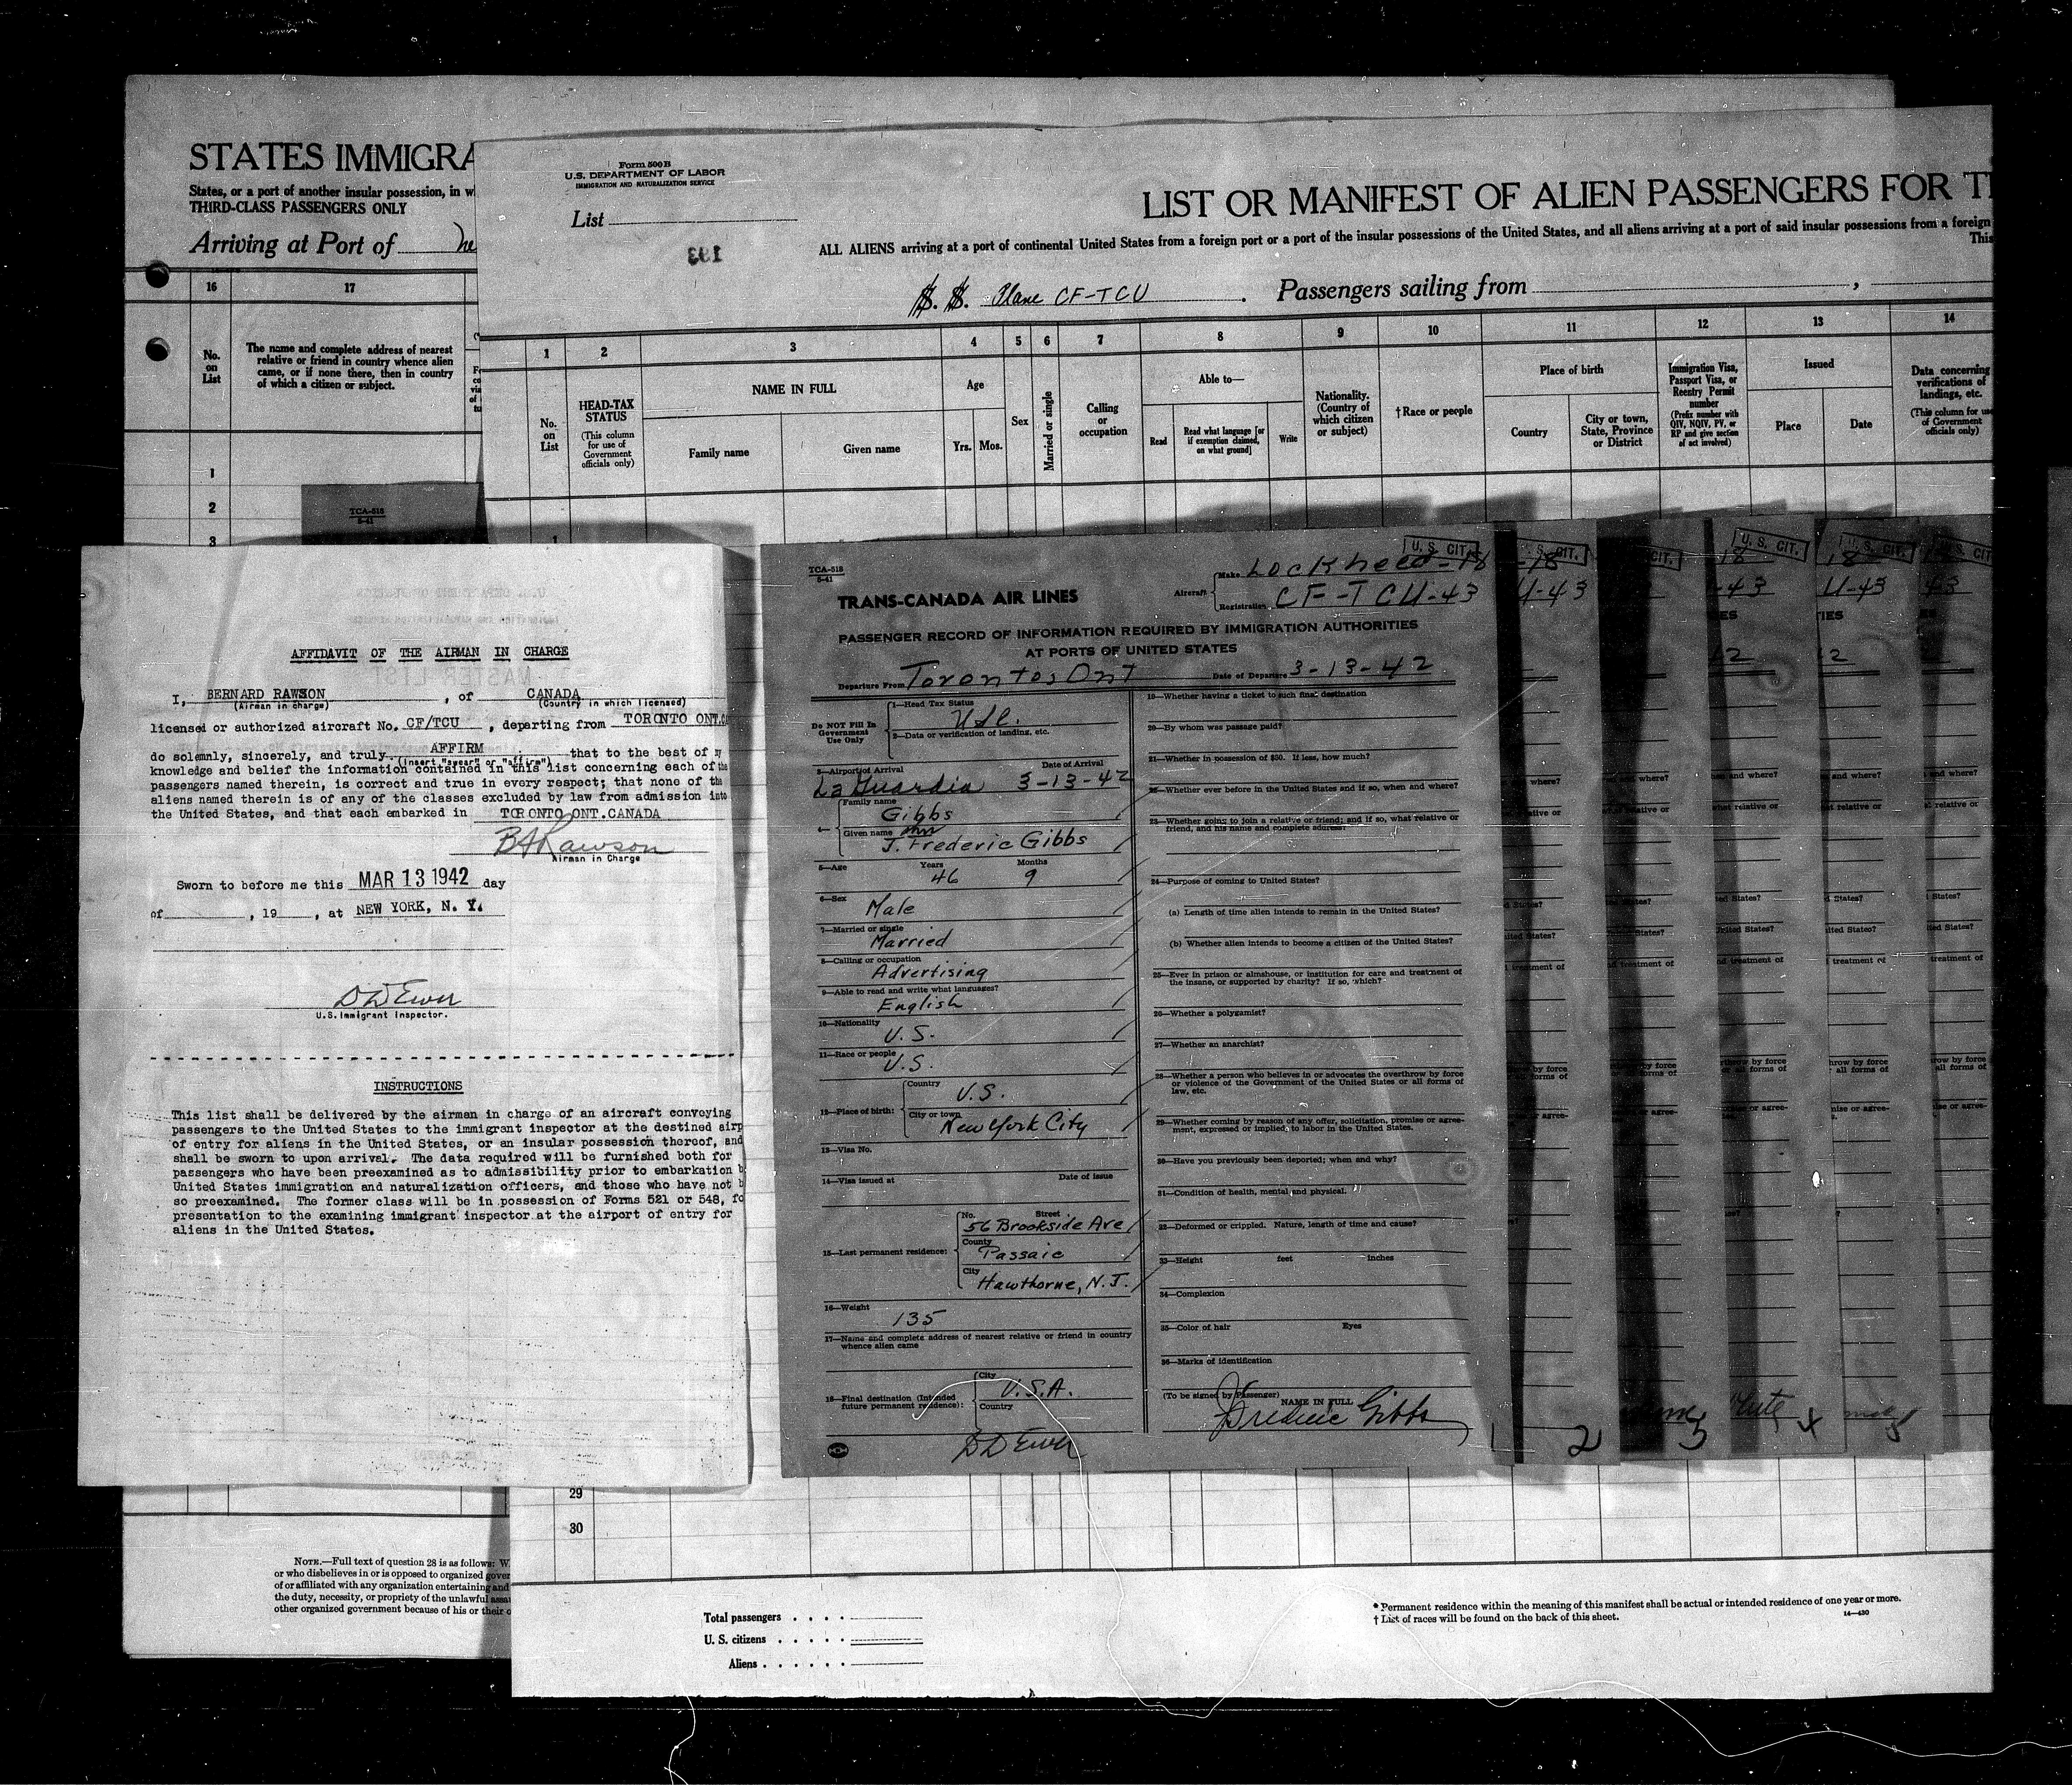 STATES IMMIGRA
States, or a port of another insular possession, in w
THIRD-CLASS PASSENGERS ONLY
Arriving at Port of
16
17
No. on List
The name and complete address of nearest
relative or friend in country whence alien
came, or if none there, then in country
of which a citizen or subject.
1
2
3
TCA-518
5-41
Form 500 B
U.S. DEPARTMENT OF LABOR
IMMIGRATION AND NATURALIZATION SERVICE
List
193
LIST OR MANIFEST OF ALIEN PASSENGERS FOR T
ALL ALIENS arriving at a port of continental United States from a foreign port or a port of the insular possessions of the United States, and all aliens arriving at a port of said insular possessions from a foreign
This
S. S. Plane CF-TCU . Passengers sailing from ,
1 2 3 4 5 6 7 8 9 10 11 12 13 14
No. on List
HEAD-TAX STATUS
(This column for use of Government officials only)
NAME IN FULL
Family name
Given name
Age
Yrs. Mos.
Sex
Married or single
Calling or occupation
Able to—
Read
Read what language [or if exemption claimed, on what ground]
Write
Nationality. (Country of which citizen or subject)
†Race or people
Place of birth
Country
City or town, State, Province or District
Immigration Visa, Passport Visa, or Reentry Permit number
(Prefix number with QIV, NQIV, PV, or RP and give section of act involved)
Issued
Place
Date
Data concerning verifications of landings, etc.
(This column for use of Government officials only)
1
AFFIDAVIT OF THE AIRMAN IN CHARGE
I, BERNARD RAWSON , of CANADA
(Airman in charge) (Country in which licensed)
licensed or authorized aircraft No. CF/TCU , departing from TORONTO ONT.
do solemnly, sincerely, and truly AFFIRM that to the best of
(insert "swear" or "affirm")
knowledge and belief the information contained in this list concerning each of the
passengers named therein, is correct and true in every respect; that none of the
aliens named therein is of any of the classes excluded by law from admission into
the United States, and that each embarked in TORONTO ONT.CANADA
BARawson
Airman in Charge
Sworn to before me this MAR 13 1942 day
of , 19 , at NEW YORK, N. Y.
D D Ewer
U.S. Immigrant Inspector.
INSTRUCTIONS
This list shall be delivered by the airman in charge of an aircraft conveying
passengers to the United States to the immigrant inspector at the destined airp
of entry for aliens in the United States, or an insular possession thereof, and
shall be sworn to upon arrival. The data required will be furnished both for
passengers who have been preexamined as to admissibility prior to embarkation b
United States immigration and naturalization officers, and those who have not b
so preexamined. The former class will be in possession of Forms 521 or 548, fo
presentation to the examining immigrant inspector at the airport of entry for
aliens in the United States.
TCA-518
5-41
U. S. CIT.
TRANS-CANADA AIR LINES
Aircraft
Make Lockheed-18
Registration CF-TCU-43
PASSENGER RECORD OF INFORMATION REQUIRED BY IMMIGRATION AUTHORITIES
AT PORTS OF UNITED STATES
Departure From Toronto, Ont Date of Departure 3-13-42
Do NOT Fill In
Government
Use Only
1—Head Tax Status
USC.
2—Data or verification of landing, etc.
3—Airport of Arrival Date of Arrival
La Guardia 3-13-42
4—
Family name
Gibbs
Given name
J. Frederic Gibbs
5—Age Years Months
46 9
6—Sex
Male
7—Married or single
Married
8—Calling or occupation
Advertising
9—Able to read and write what languages?
English
10—Nationality
U.S.
11—Race or people
U.S.
12—Place of birth:
Country
U.S.
City or town
New York City
13—Visa No.
14—Visa issued at Date of issue
15—Last permanent residence:
No. Street
56 Brookside Ave
County
Passaic
City
Hawthorne, N.J.
16—Weight
135
17—Name and complete address of nearest relative or friend in country
whence alien came
18—Final destination (Intended
future permanent residence):
City
U.S.A.
Country
D D Ewer
19—Whether having a ticket to such final destination
20—By whom was passage paid?
21—Whether in possession of $50. If less, how much?
22—Whether ever before in the United States and if so, when and where?
23—Whether going to join a relative or friend; and if so, what relative or
friend, and his name and complete address?
24—Purpose of coming to United States?
(a) Length of time alien intends to remain in the United States?
(b) Whether alien intends to become a citizen of the United States?
25—Ever in prison or almshouse, or institution for care and treatment of
the insane, or supported by charity? If so, which?
26—Whether a polygamist?
27—Whether an anarchist?
28—Whether a person who believes in or advocates the overthrow by force
or violence of the Government of the United States or all forms of
law, etc.
29—Whether coming by reason of any offer, solicitation, promise or agree-
ment, expressed or implied, to labor in the United States.
30—Have you previously been deported; when and why?
31—Condition of health, mental and physical.
32—Deformed or crippled. Nature, length of time and cause?
33—Height feet inches
34—Complexion
35—Color of hair Eyes
36—Marks of identification
(To be signed by Passenger)
NAME IN FULL
J Frederic Gibbs
1 2 3 4 5
29
30
NOTE.—Full text of question 28 is as follows: W
or who disbelieves in or is opposed to organized gover
of or affiliated with any organization entertaining and
the duty, necessity, or propriety of the unlawful assa
other organized government because of his or their o
Total passengers
U. S. citizens
Aliens
* Permanent residence within the meaning of this manifest shall be actual or intended residence of one year or more.
† List of races will be found on the back of this sheet.
14—430